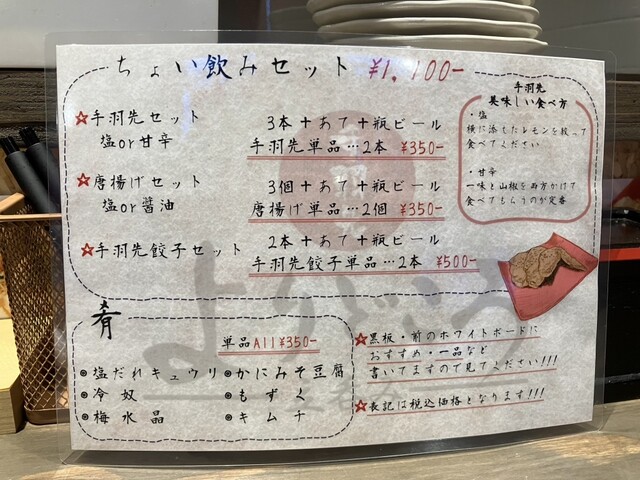 ちょい飲みセット ¥1,100-
☆手羽先セット 3本＋あて＋瓶ビール
塩or甘辛 手羽先単品…2本 ¥350-
☆唐揚げセット 3個＋あて＋瓶ビール
塩or醤油 唐揚げ単品…2個 ¥350-
☆手羽先餃子セット 2本＋あて＋瓶ビール
手羽先餃子単品…2本 ¥500-
手羽先
美味しい食べ方
・塩
横に添えたレモンを絞って
食べてください
・甘辛
一味と山椒を両方かけて
食べてもらうのが定番
肴
単品All¥350-
◎塩だれキュウリ ◎かにみそ豆腐
◎冷奴 ◎もずく
◎梅水晶 ◎キムチ
☆黒板・前のホワイトボードに
おすすめ・一品など
書いてますので見てください!!!
☆表記は税込価格となります!!!